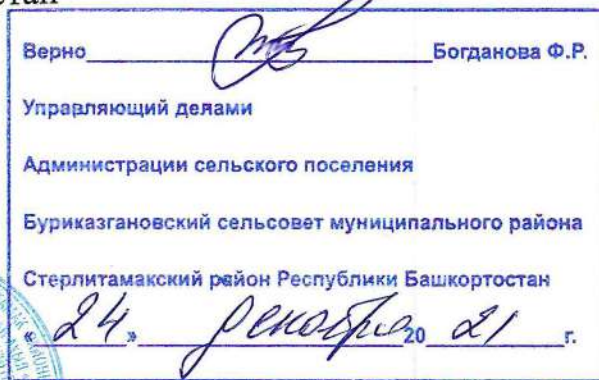 Верно Богданова Ф.Р.
Управляющий делами
Администрации сельского поселения
Буриказгановский сельсовет муниципального района
Стерлитамакский район Республики Башкортостан
«24» декабря 20 21 г.